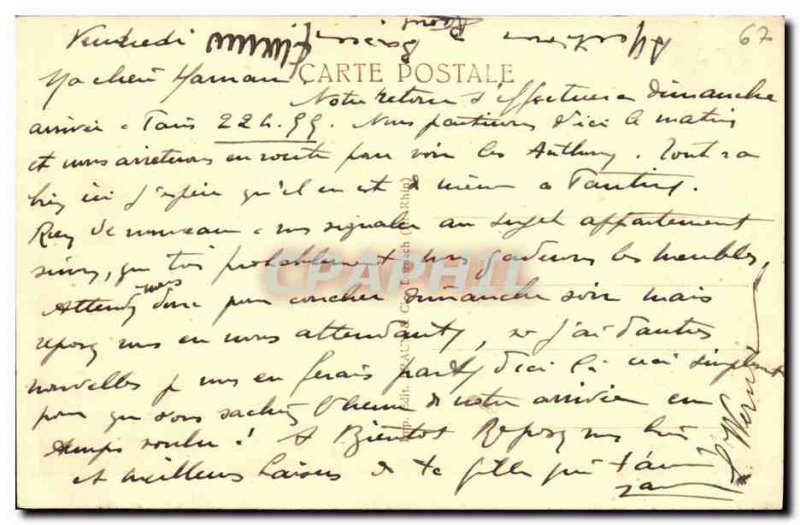 Vendredi
67
CARTE POSTALE
Ma chère Maman
Notre retour s'effectuera dimanche
arrivée à Paris 22h.99. Nous partirons d'ici le matin
et nous arrêterons en route pour voir les Anthony. Tout va
bien ici j'espère qu'il en est de même à
Rien de nouveau à vous signaler au sujet appartement
sinon que très probablement nous garderons les meubles,
Attendez nous donc pour coucher dimanche soir mais
reposez vous en nous attendant, si j'ai d'autres
nouvelles je vous en ferais part d'ici là ceci simplement
pour que vous sachiez l'heure de notre arrivée en
temps voulu! A Bientôt Reposez vous bien
et meilleurs baisers de ta fille qui t'aime
CPAPHIL